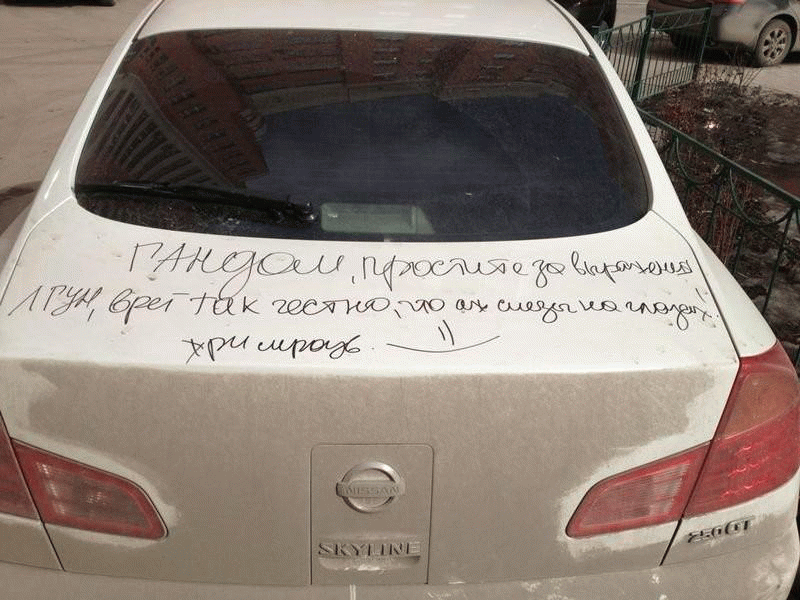 ГАНДОМ, простите за выражения
ЛГУН, врёт так честно, что аж слёзы на глазах!
))
NISSAN
SKYLINE
250GT